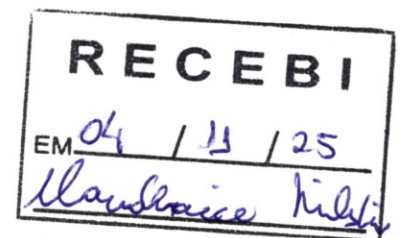 RECEBI
EM 04 / 11 / 25